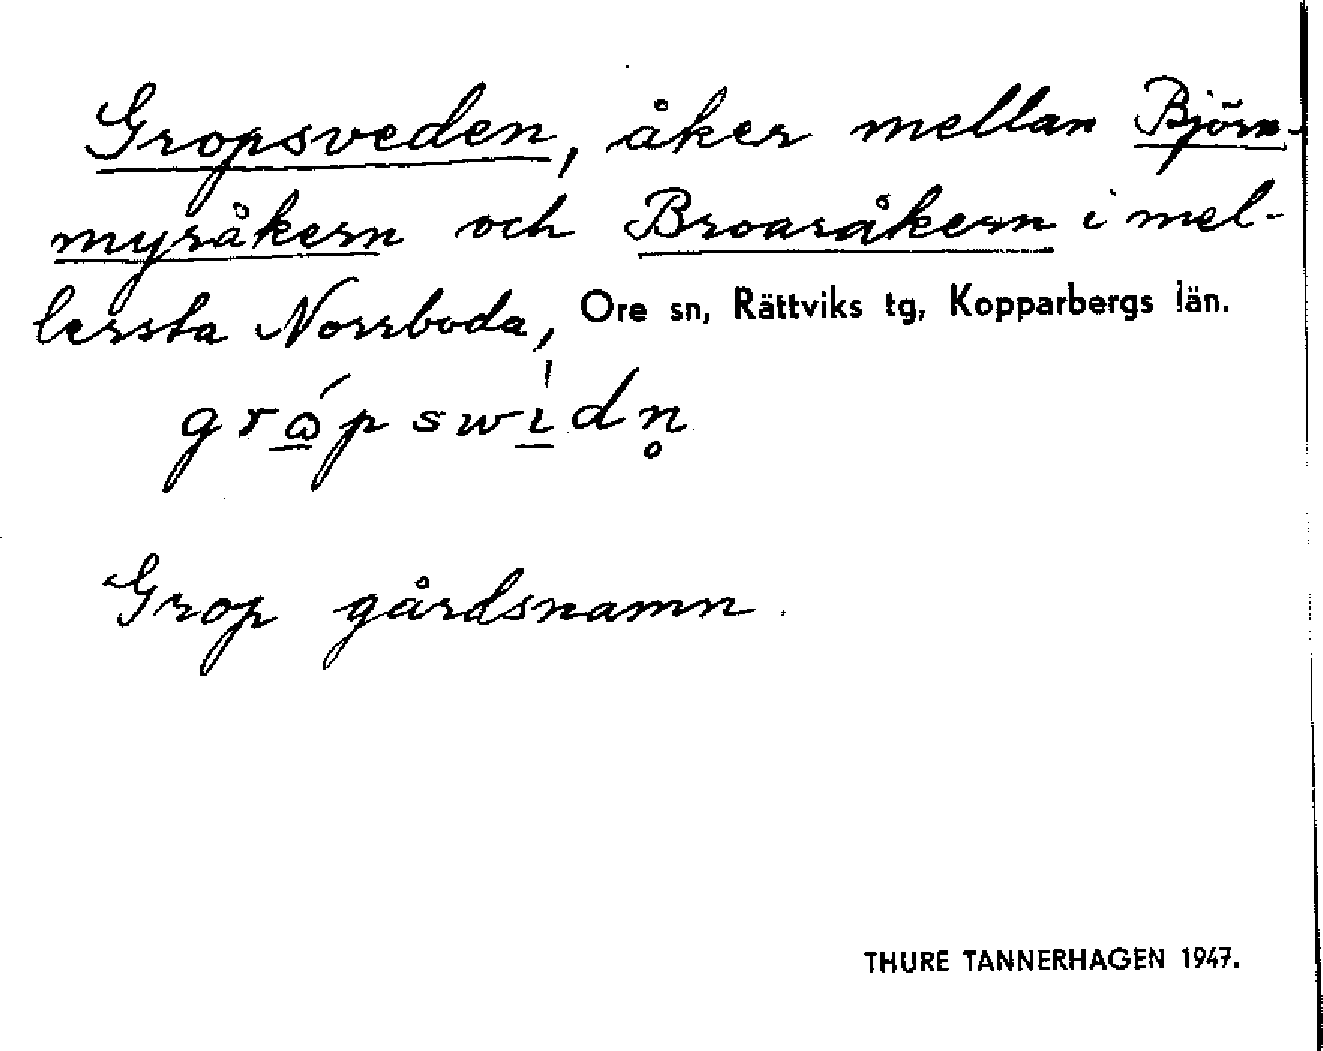 Gropsveden, åker mellan Björn-
myråkern och Broaråkern i mel-
lersta Norrboda, Ore sn, Rättviks tg, Kopparbergs län.
grɷ̱́pswi̱̍dn̥
Grop gårdsnamn.
THURE TANNERHAGEN 1947.